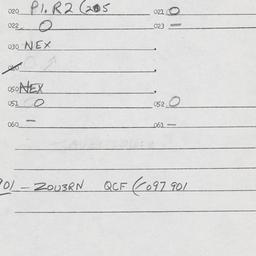 020 P1. R2 (205 021 O
022 O 023 —
030 NEX .
040 .
050 NEX .
051 O 052 O
060 — 061 —
901 — ZOU3RN QCF (097 901